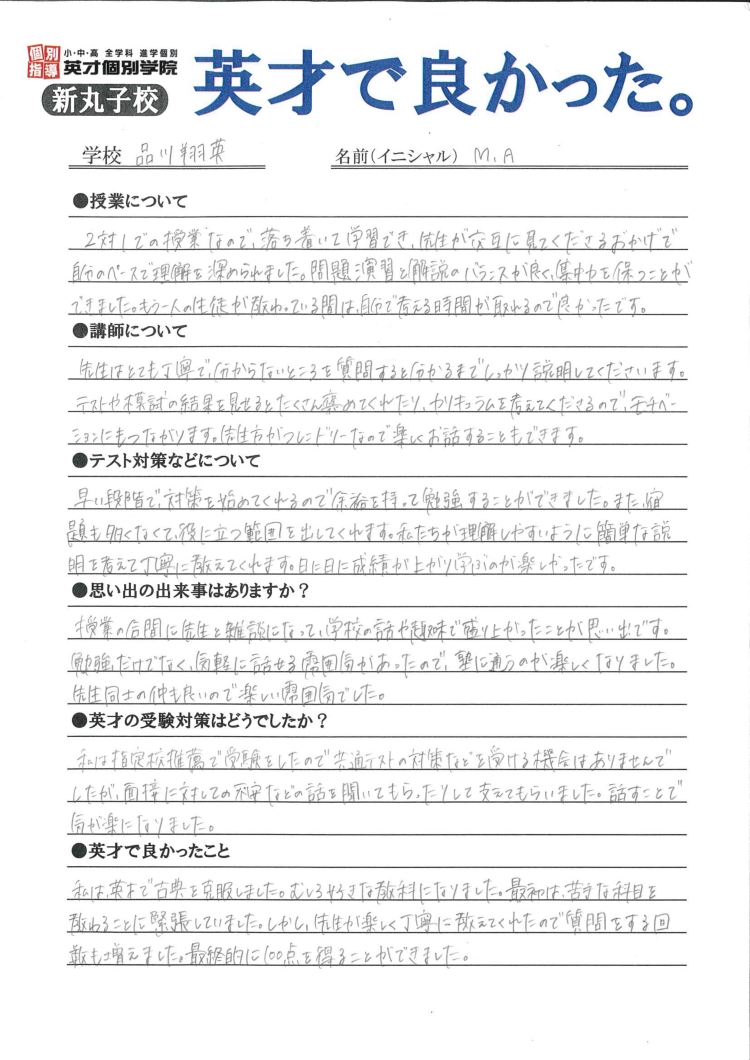 個別指導 小・中・高 全学科 進学個別
英才個別学院
新丸子校
英才で良かった。
学校 品川翔英 名前(イニシャル) M.A
●授業について
2対1での授業なので、落ち着いて学習でき、先生が交互に見てくださるおかげで
自分のペースで理解を深められました。問題演習と解説のバランスが良く、集中力を保つことが
できました。もう一人の生徒が教わっている間は、自分で考える時間が取れるので良かったです。
●講師について
先生はとても丁寧で、分からないところを質問すると分かるまでしっかり説明してくださいます。
テストや模試の結果を見せるとたくさん褒めてくれたり、カリキュラムを考えてくださるので、モチベー
ションにもつながります。先生方がフレンドリーなので楽しくお話することもできます。
●テスト対策などについて
早い段階で、対策を始めてくれるので余裕を持って勉強することができました。また、宿
題も多くなくて、役に立つ範囲を出してくれます。私たちが理解しやすいように簡単な説
明を考えて丁寧に教えてくれます。日に日に成績が上がり学ぶのが楽しかったです。
●思い出の出来事はありますか？
授業の合間に先生と雑談になって、学校の話や趣味で盛り上がったことが思い出です。
勉強だけでなく、気軽に話せる雰囲気があったので、塾に通うのが楽しくなりました。
先生同士の仲も良いので楽しい雰囲気でした。
●英才の受験対策はどうでしたか？
私は指定校推薦で受験をしたので共通テストの対策などを受ける機会はありませんで
したが、面接に対しての不安などの話を聞いてもらったりして支えてもらいました。話すことで
気が楽になりました。
●英才で良かったこと
私は、英才で古典を克服しました。むしろ好きな教科になりました。最初は、苦手な科目を
教わることに緊張していました。しかし、先生が楽しく丁寧に教えてくれたので質問をする回
数も増えました。最終的に100点を得ることができました。